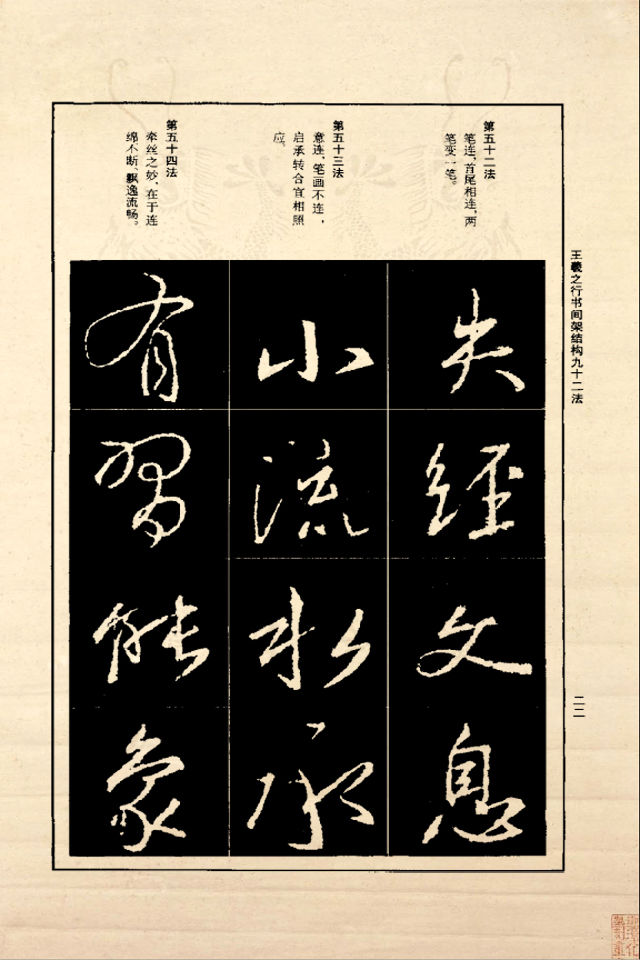 王羲之行书间架结构九十二法
二二
第五十二法
笔连,首尾相连,两
笔变一笔。
第五十三法
意连,笔画不连,
启承转合宜相照
应。
第五十四法
牵丝之妙,在于连
绵不断,飘逸流畅。
失
经
文
息
小
流
水
承
有
習
能
象